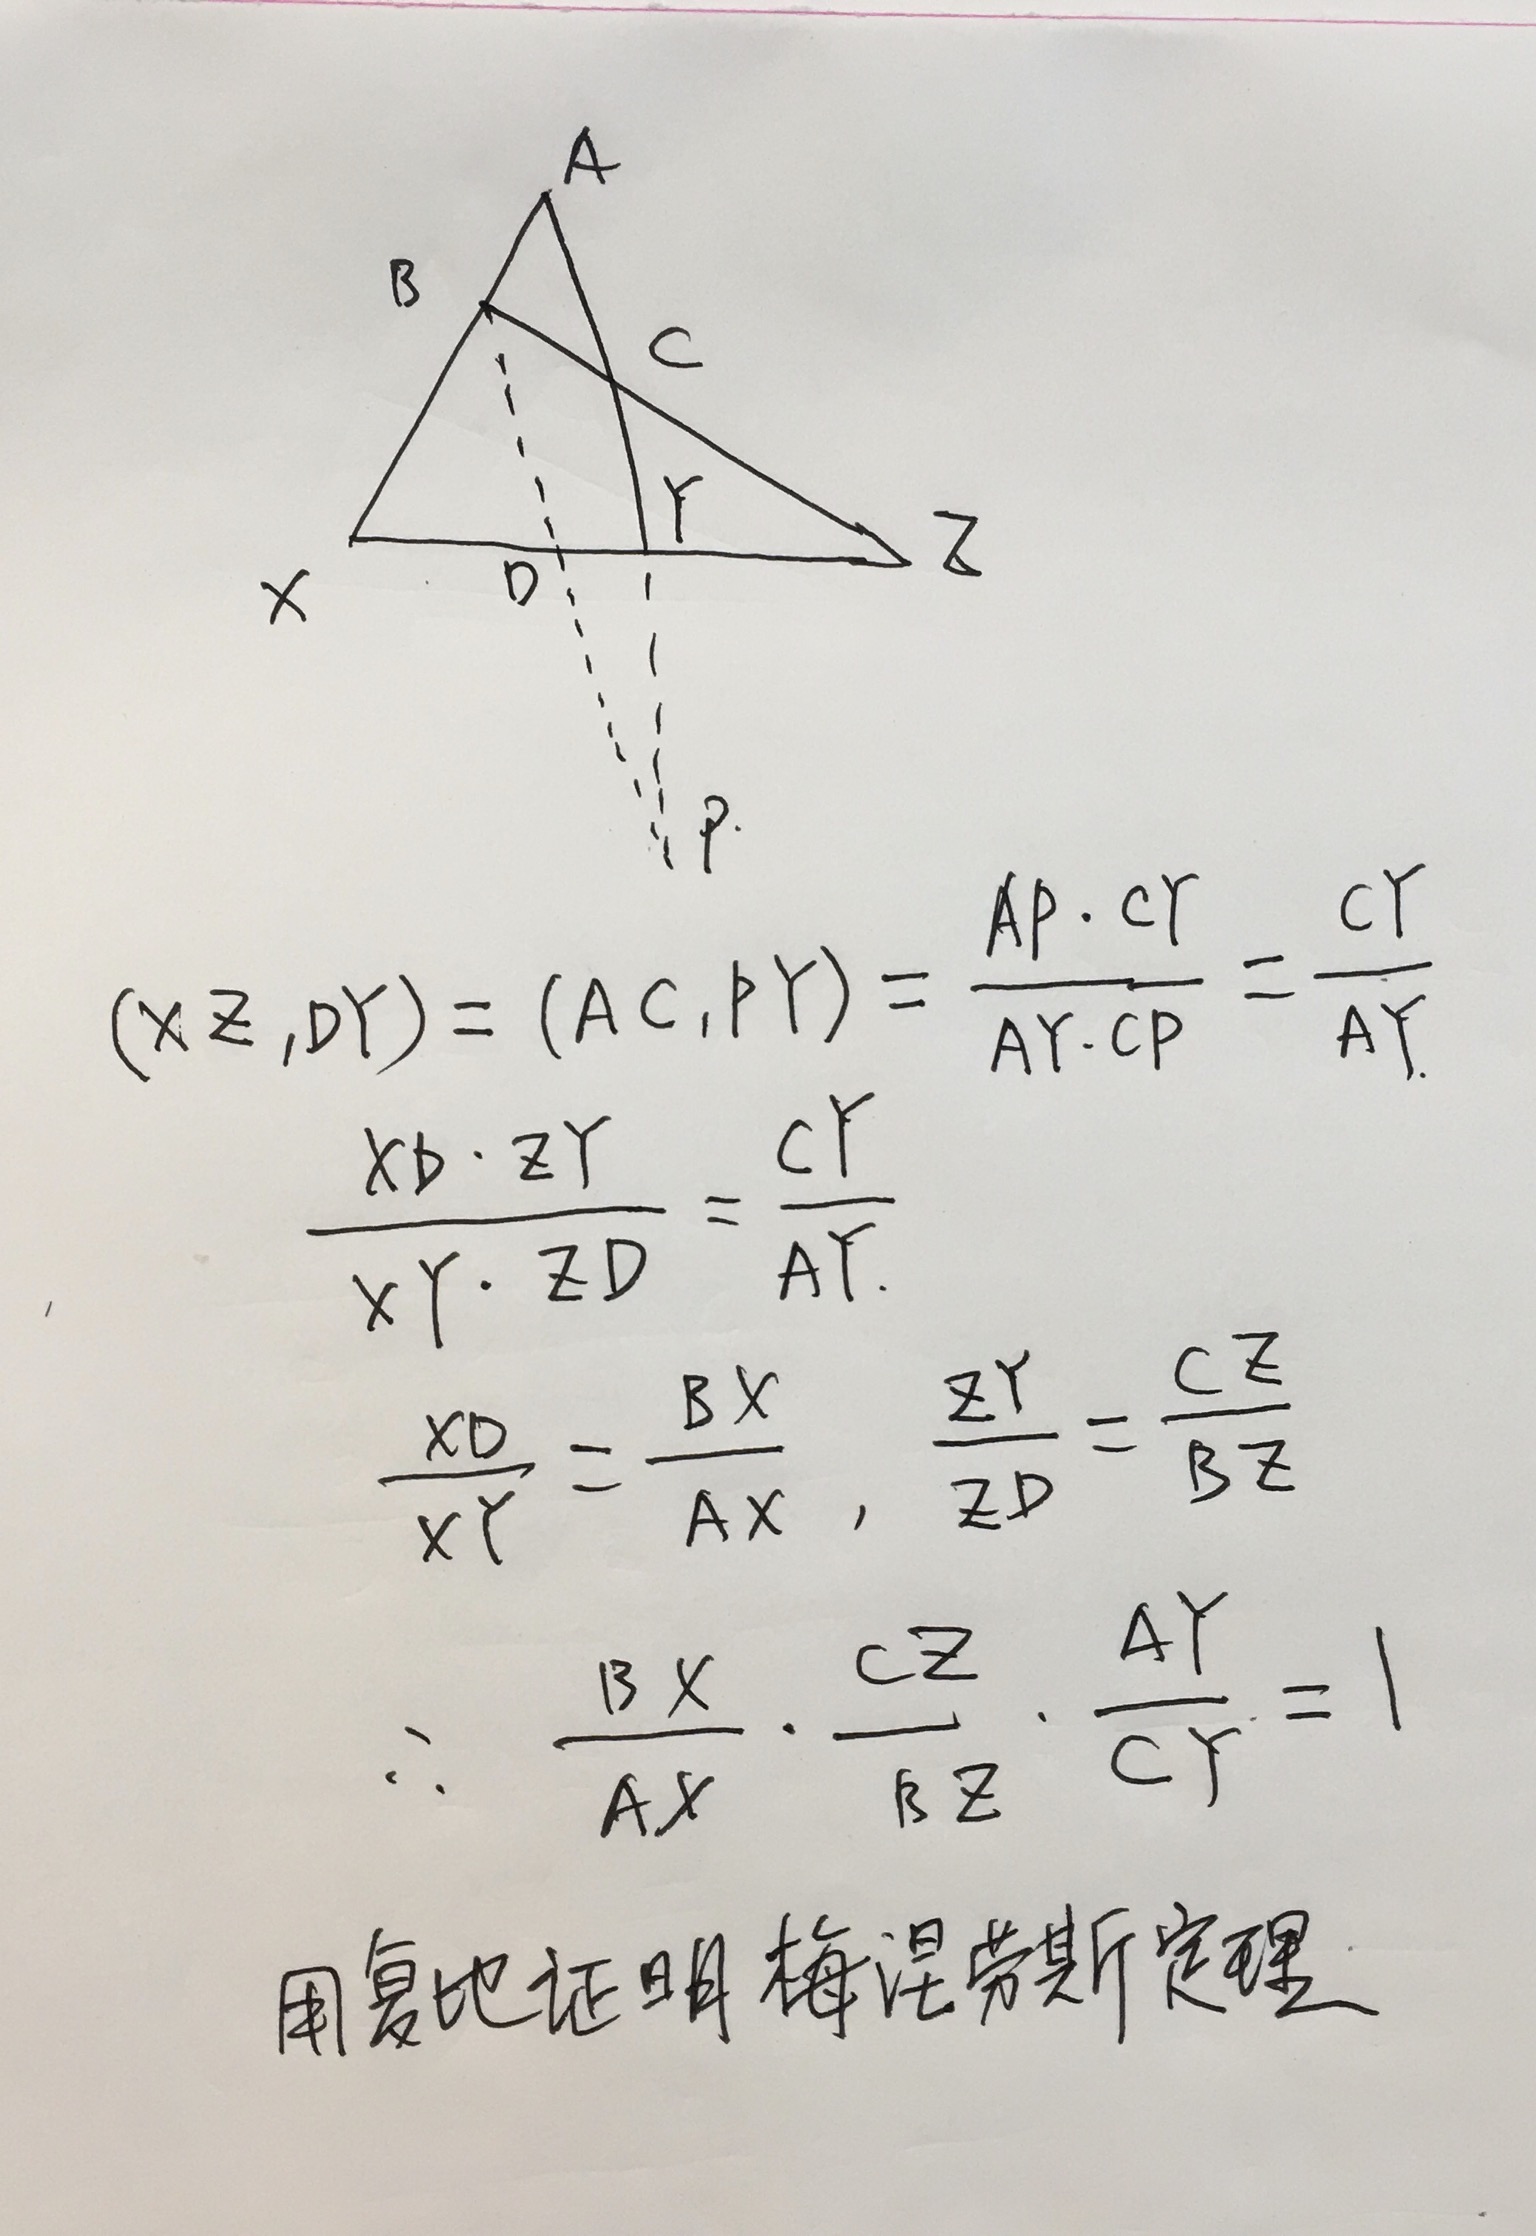 A
B
C
Y
Z
X
D
P.
(XZ,DY)=(AC,PY)=\frac{AP·CY}{AY·CP}=\frac{CY}{AY.}
\frac{XD·ZY}{XY·ZD}=\frac{CY}{AY.}
\frac{XD}{XY}=\frac{BX}{AX},\frac{ZY}{ZD}=\frac{CZ}{BZ}
∴\frac{BX}{AX}·\frac{CZ}{BZ}·\frac{AY}{CY}=1
用复比证明梅涅劳斯定理